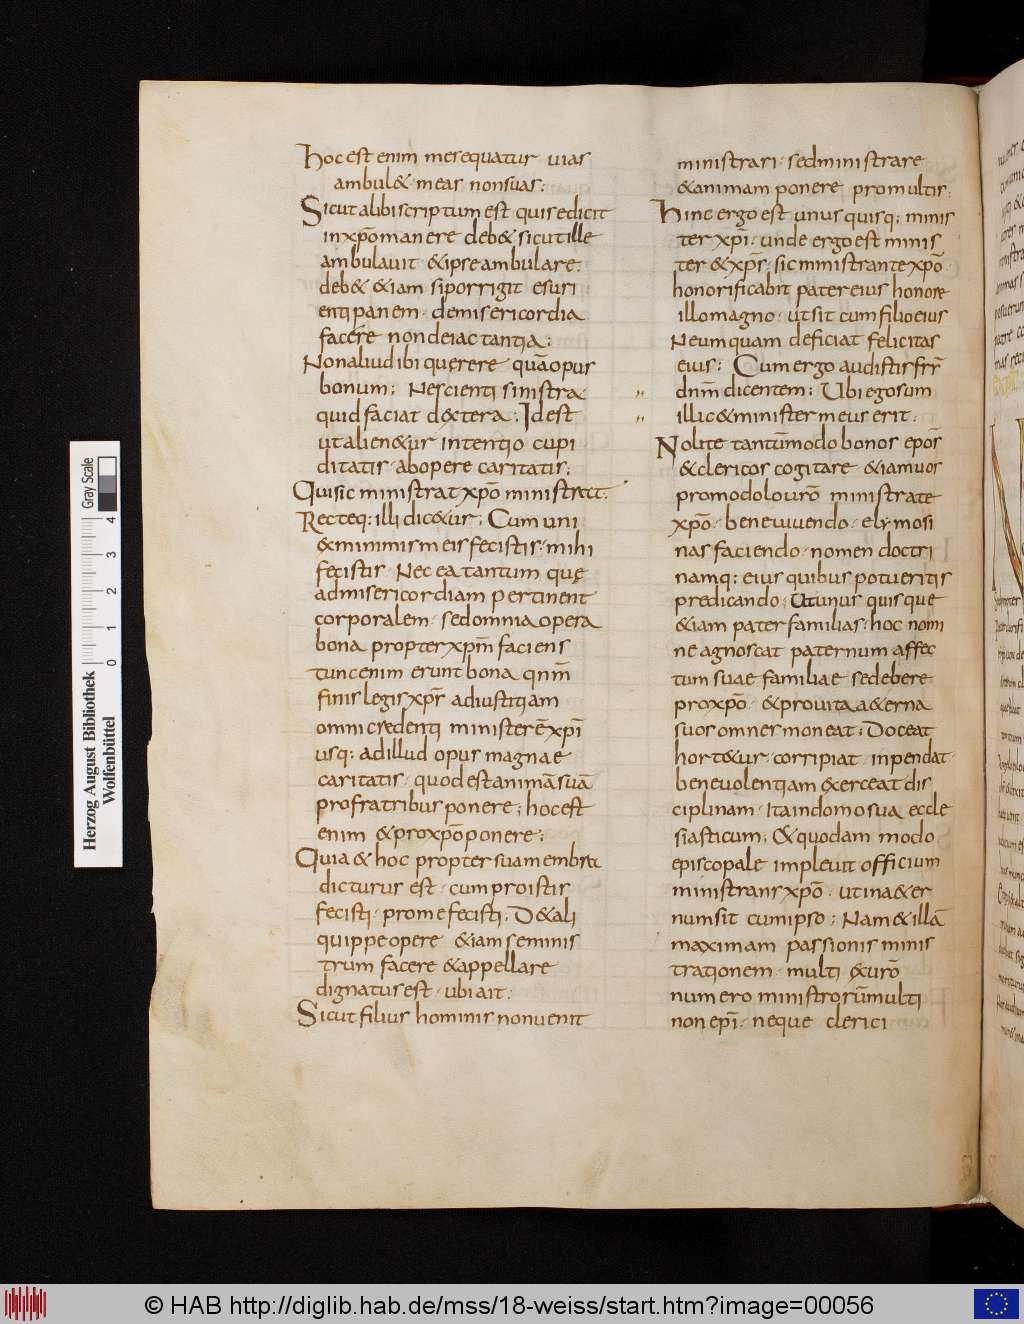 Hoc est enim me sequatur vias
ambul& meas non suas:
Sicut alibi scriptum est qui se dicit
in xp̄o manere deb& sicut ille
ambulavit · & ipse ambulare.
deb& &iam si porrigit esuri
enti panem · de misericordia
facere non de iactantia:
Non aliud ibi quęrere quā opus
bonum; Nescienti sinistra
quid faciat dextera: Id est
ut alien&ur intentio cupi
ditatis · ab opere caritatis;
Qui sic ministrat xp̄o ministrat.
Recteq: illi dic&ur; Cum uni
ex minimis meis fecistis · mihi
fecistis · Nec ea tantum quę
ad misericordiam pertinent
corporalem · sed omnia opera
bona propter xpm̄ faciens
tunc enim erunt bona qnm̄
finis legis xp̄s ad iustitiam
omni credenti minister ē xp̄i
usq: ad illud opus magnae
caritatis · quod est animā suā
pro fratribus ponere; hoc est
enim & pro xp̄o ponere;
Quia & hoc propter sua membra
dicturus est · cum pro istis
fecisti · pro me fecisti; D& ali
quippe opere &iam se minis
trum facere & appellare
dignatus est · ubi ait:
Sicut filius hominis non venit
ministrari · sed ministrare
& animam ponere pro multis.
Hinc ergo est unus quisq; minis
ter xp̄i · unde ergo est minis
ter & xp̄s · sic ministrante xp̄o
honorificabit pater eius honore
illo magno · ut sit cum filio eius
Ne umquam deficiat felicitas
eius; Cum ergo audistis fr̄r̄
dnm̄ dicentem; Ubi ego sum
illic & minister meus erit:
Nolite tantūmodo bonos ep̄os
& clericos cogitare &iam vos
pro modo vr̄o ministrate
xp̄o · bene vivendo · elymosi
nas faciendo · nomen doctri
namq: eius quibus potueritis
predicando; Ut unus quisque
&iam pater familias · hoc nomi
ne agnoscat paternum affec
tum suae familiae se debere
pro xp̄o · & pro vita a&erna
suos omnes moneat; Doceat
hort&ur · corripiat · inpendat
benevolentiam exerceat dis
ciplinam · Ita in domo sua eccle
siasticum; & quodam modo
episcopale implevit officium
ministrans xp̄o · ut in a&er
num sit cum ipso; Nam & illā
maximam passionis minis
trationem · multi ex vr̄o
numero ministrorū multi
non ep̄i · neque clerici
Herzog August Bibliothek
Wolfenbüttel
0 1 2 3 4
Gray Scale
© HAB http://diglib.hab.de/mss/18-weiss/start.htm?image=00056